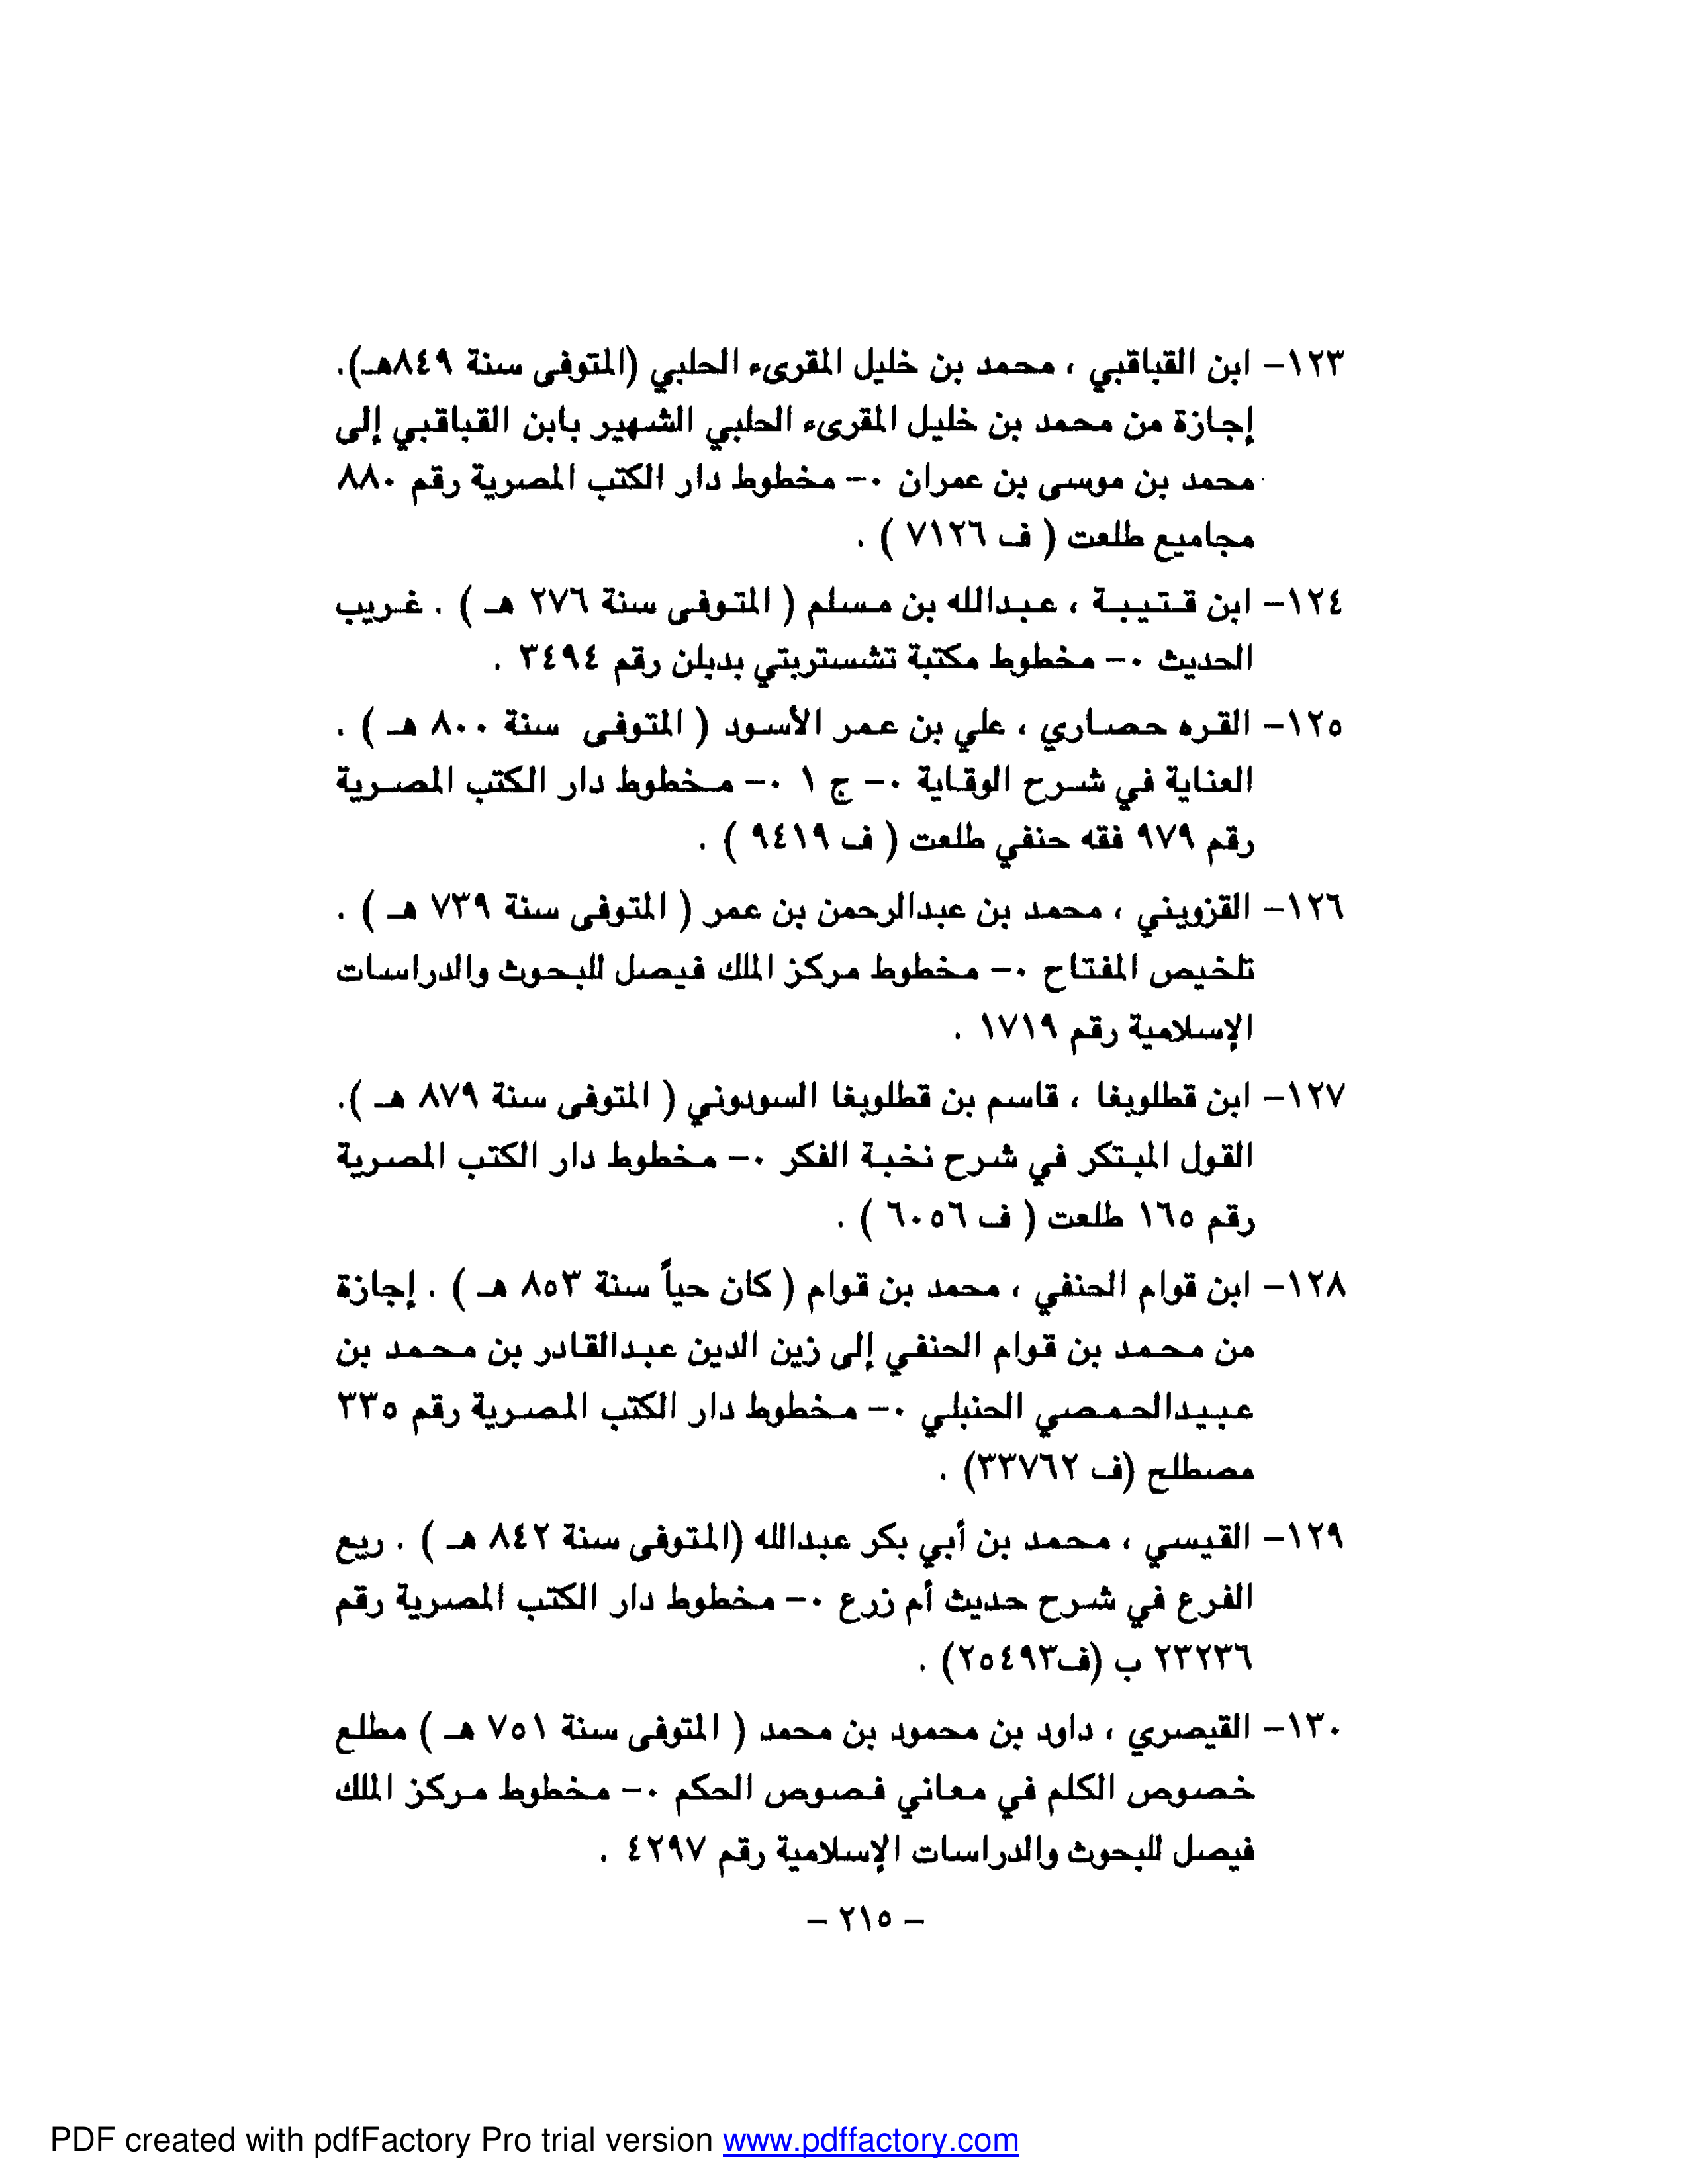 ١٢٣- ابن القباقبي ، محمد بن خليل المقرىء الحلبي (المتوفى سنة ٨٤٩هـ).
إجازة من محمد بن خليل المقرىء الحلبي الشهير بابن القباقبي إلى
محمد بن موسى بن عمران ٠- مخطوط دار الكتب المصرية رقم ٨٨٠
مجاميع طلعت ( ف ٧١٢٦ ) .
١٢٤- ابن قتيبة ، عبدالله بن مسلم ( المتوفى سنة ٢٧٦ هـ ) . غريب
الحديث ٠- مخطوط مكتبة تشستربتي بدبلن رقم ٣٤٩٤ .
١٢٥- القره حصاري ، علي بن عمر الأسود ( المتوفى سنة ٨٠٠ هـ ) .
العناية في شرح الوقاية ٠- ج ١ ٠- مخطوط دار الكتب المصرية
رقم ٩٧٩ فقه حنفي طلعت ( ف ٩٤١٩ ) .
١٢٦- القزويني ، محمد بن عبدالرحمن بن عمر ( المتوفى سنة ٧٣٩ هـ ) .
تلخيص المفتاح ٠- مخطوط مركز الملك فيصل للبحوث والدراسات
الإسلامية رقم ١٧١٩ .
١٢٧- ابن قطلوبغا ، قاسم بن قطلوبغا السودوني ( المتوفى سنة ٨٧٩ هـ ).
القول المبتكر في شرح نخبة الفكر ٠- مخطوط دار الكتب المصرية
رقم ١٦٥ طلعت ( ف ٦٠٥٦ ) .
١٢٨- ابن قوام الحنفي ، محمد بن قوام ( كان حياً سنة ٨٥٣ هـ ) . إجازة
من محمد بن قوام الحنفي إلى زين الدين عبدالقادر بن محمد بن
عبيدالحمصي الحنبلي ٠- مخطوط دار الكتب المصرية رقم ٣٣٥
مصطلح (ف ٣٣٧٦٢) .
١٢٩- القيسي ، محمد بن أبي بكر عبدالله (المتوفى سنة ٨٤٢ هـ ) . ريع
الفرع في شرح حديث أم زرع ٠- مخطوط دار الكتب المصرية رقم
٢٣٢٣٦ ب (ف٢٥٤٩٣) .
١٣٠- القيصري ، داود بن محمود بن محمد ( المتوفى سنة ٧٥١ هـ ) مطلع
خصوص الكلم في معاني فصوص الحكم ٠- مخطوط مركز الملك
فيصل للبحوث والدراسات الإسلامية رقم ٤٢٩٧ .
- ٢١٥ -
PDF created with pdfFactory Pro trial version www.pdffactory.com